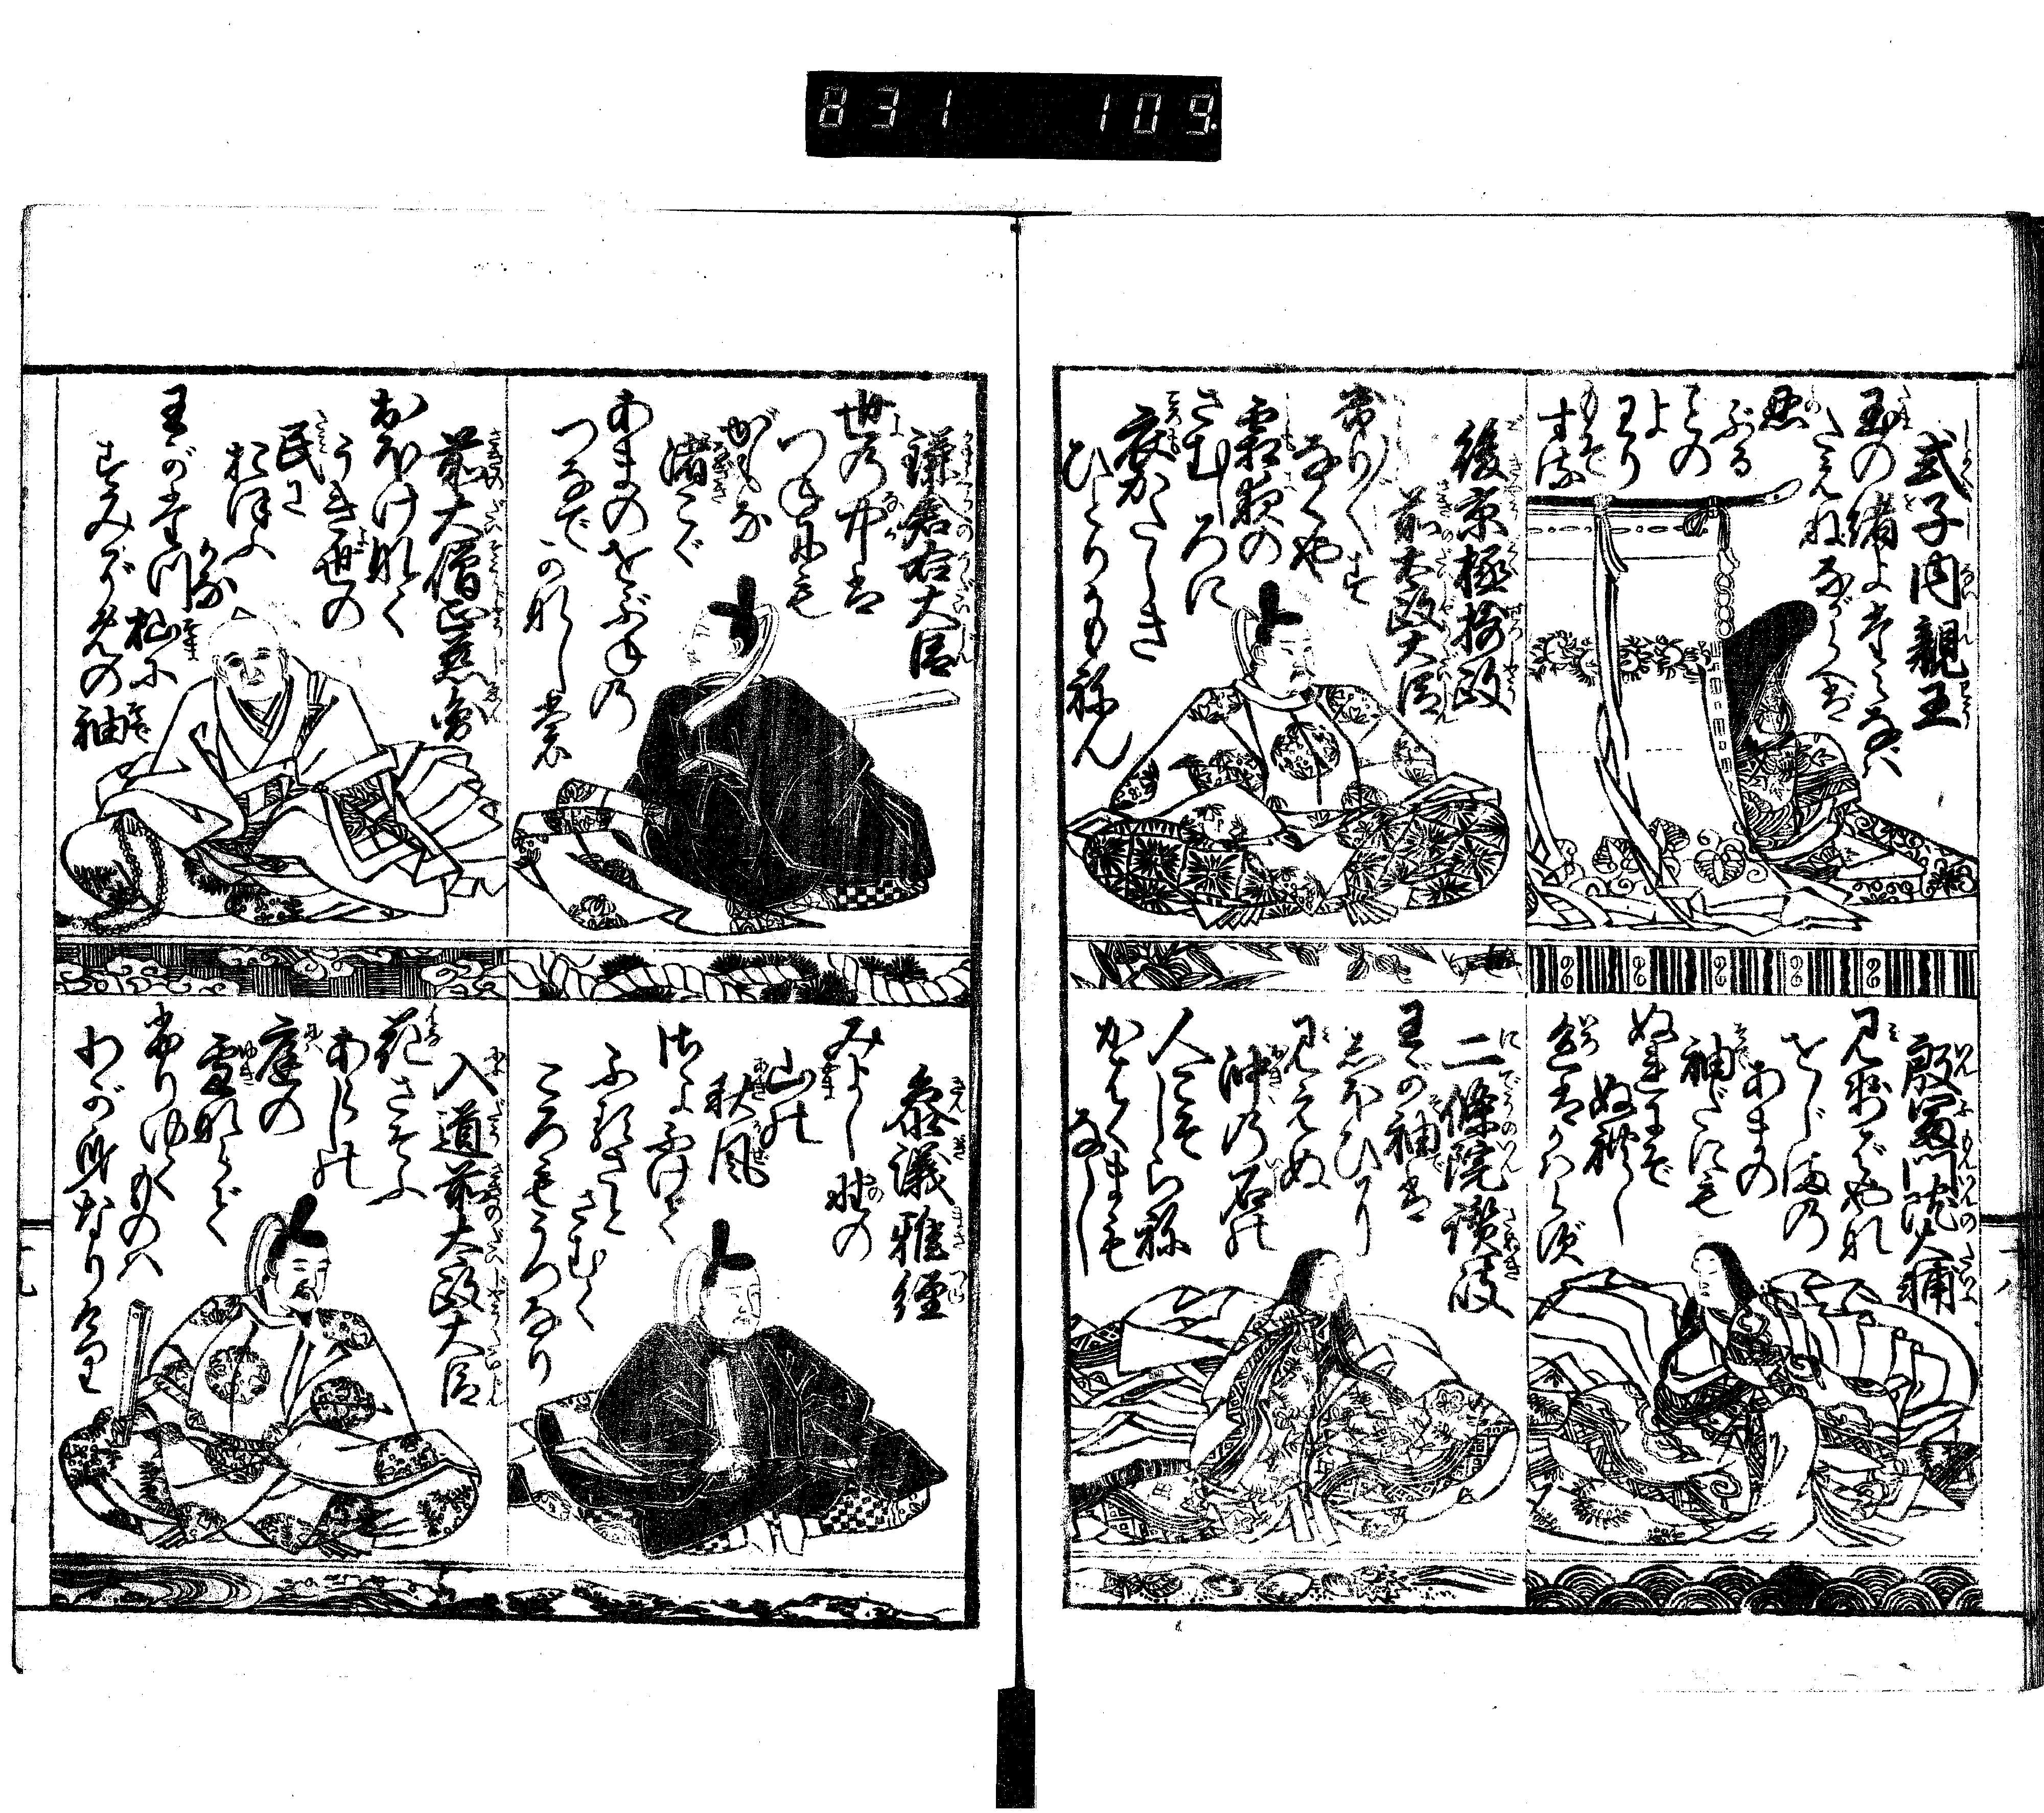 831 109
式子内親王
玉の緒よたえなば
たえねながらへば
忍
ぶる
ことの
よ
わり
もぞ
する
殷富門院大輔
見せばやな
をじまの
あまの
袖だにも
ぬれにぞ
ぬれし
色はかはらず
後京極摂政
前太政大臣
きり〳〵す
なくや
霜夜の
さむしろに
衣かたしき
ひとりかもねん
二條院讃岐
わが袖は
しほひに
見えぬ
沖の石の
人こそしらね
かわくまも
なし
鎌倉右大臣
世の中は
つねにも
がもな
渚こぐ
あまのをぶねの
つなでかなしも
参議雅経
みよし野の
山の
秋風
さよふけて
ふるさと
さむく
ころもうつなり
前大僧正慈圓
おほけなく
うき世の
民に
おほふ
かな
わがたつ杣に
すみぞめの袖
入道前太政大臣
花さそふ
あらしの
庭の
雪ならで
ふりゆくものは
わが身なりけり
十七